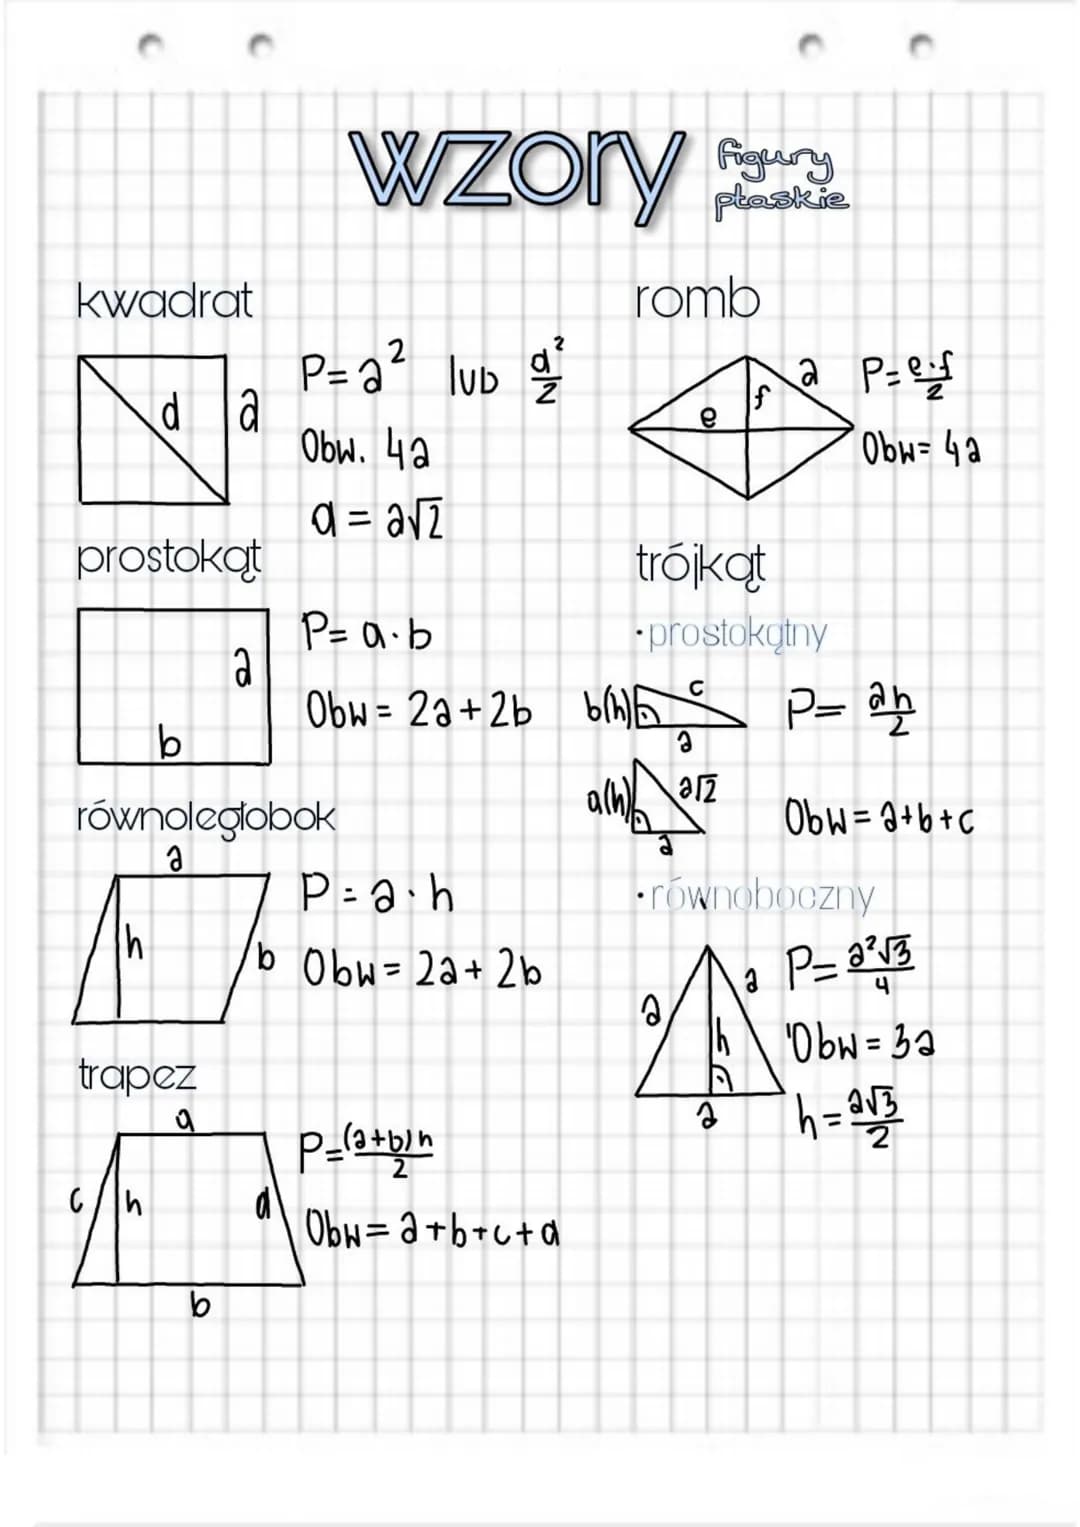 wzory
figury
płaskie
kwadrat
d
a
P = a² lub d²/2
Obw. 4a
d = a√2
prostokąt
a
b
P = a·b
Obw = 2a + 2b
równoległobok
a
h
b
P = a·h
Obw = 2a + 2b
trapez
a
c
h
d
b
P = (a+b)h/2
Obw = a+b+c+d
romb
e
f
a
P = e·f/2
Obw = 4a
trójkąt
·prostokątny
b(h)
c
a
P = ah/2
a(h)
a√2
a
Obw = a+b+c
·równoboczny
a
a
h
a
P = a²√3/4
Obw = 3a
h = a√3/2